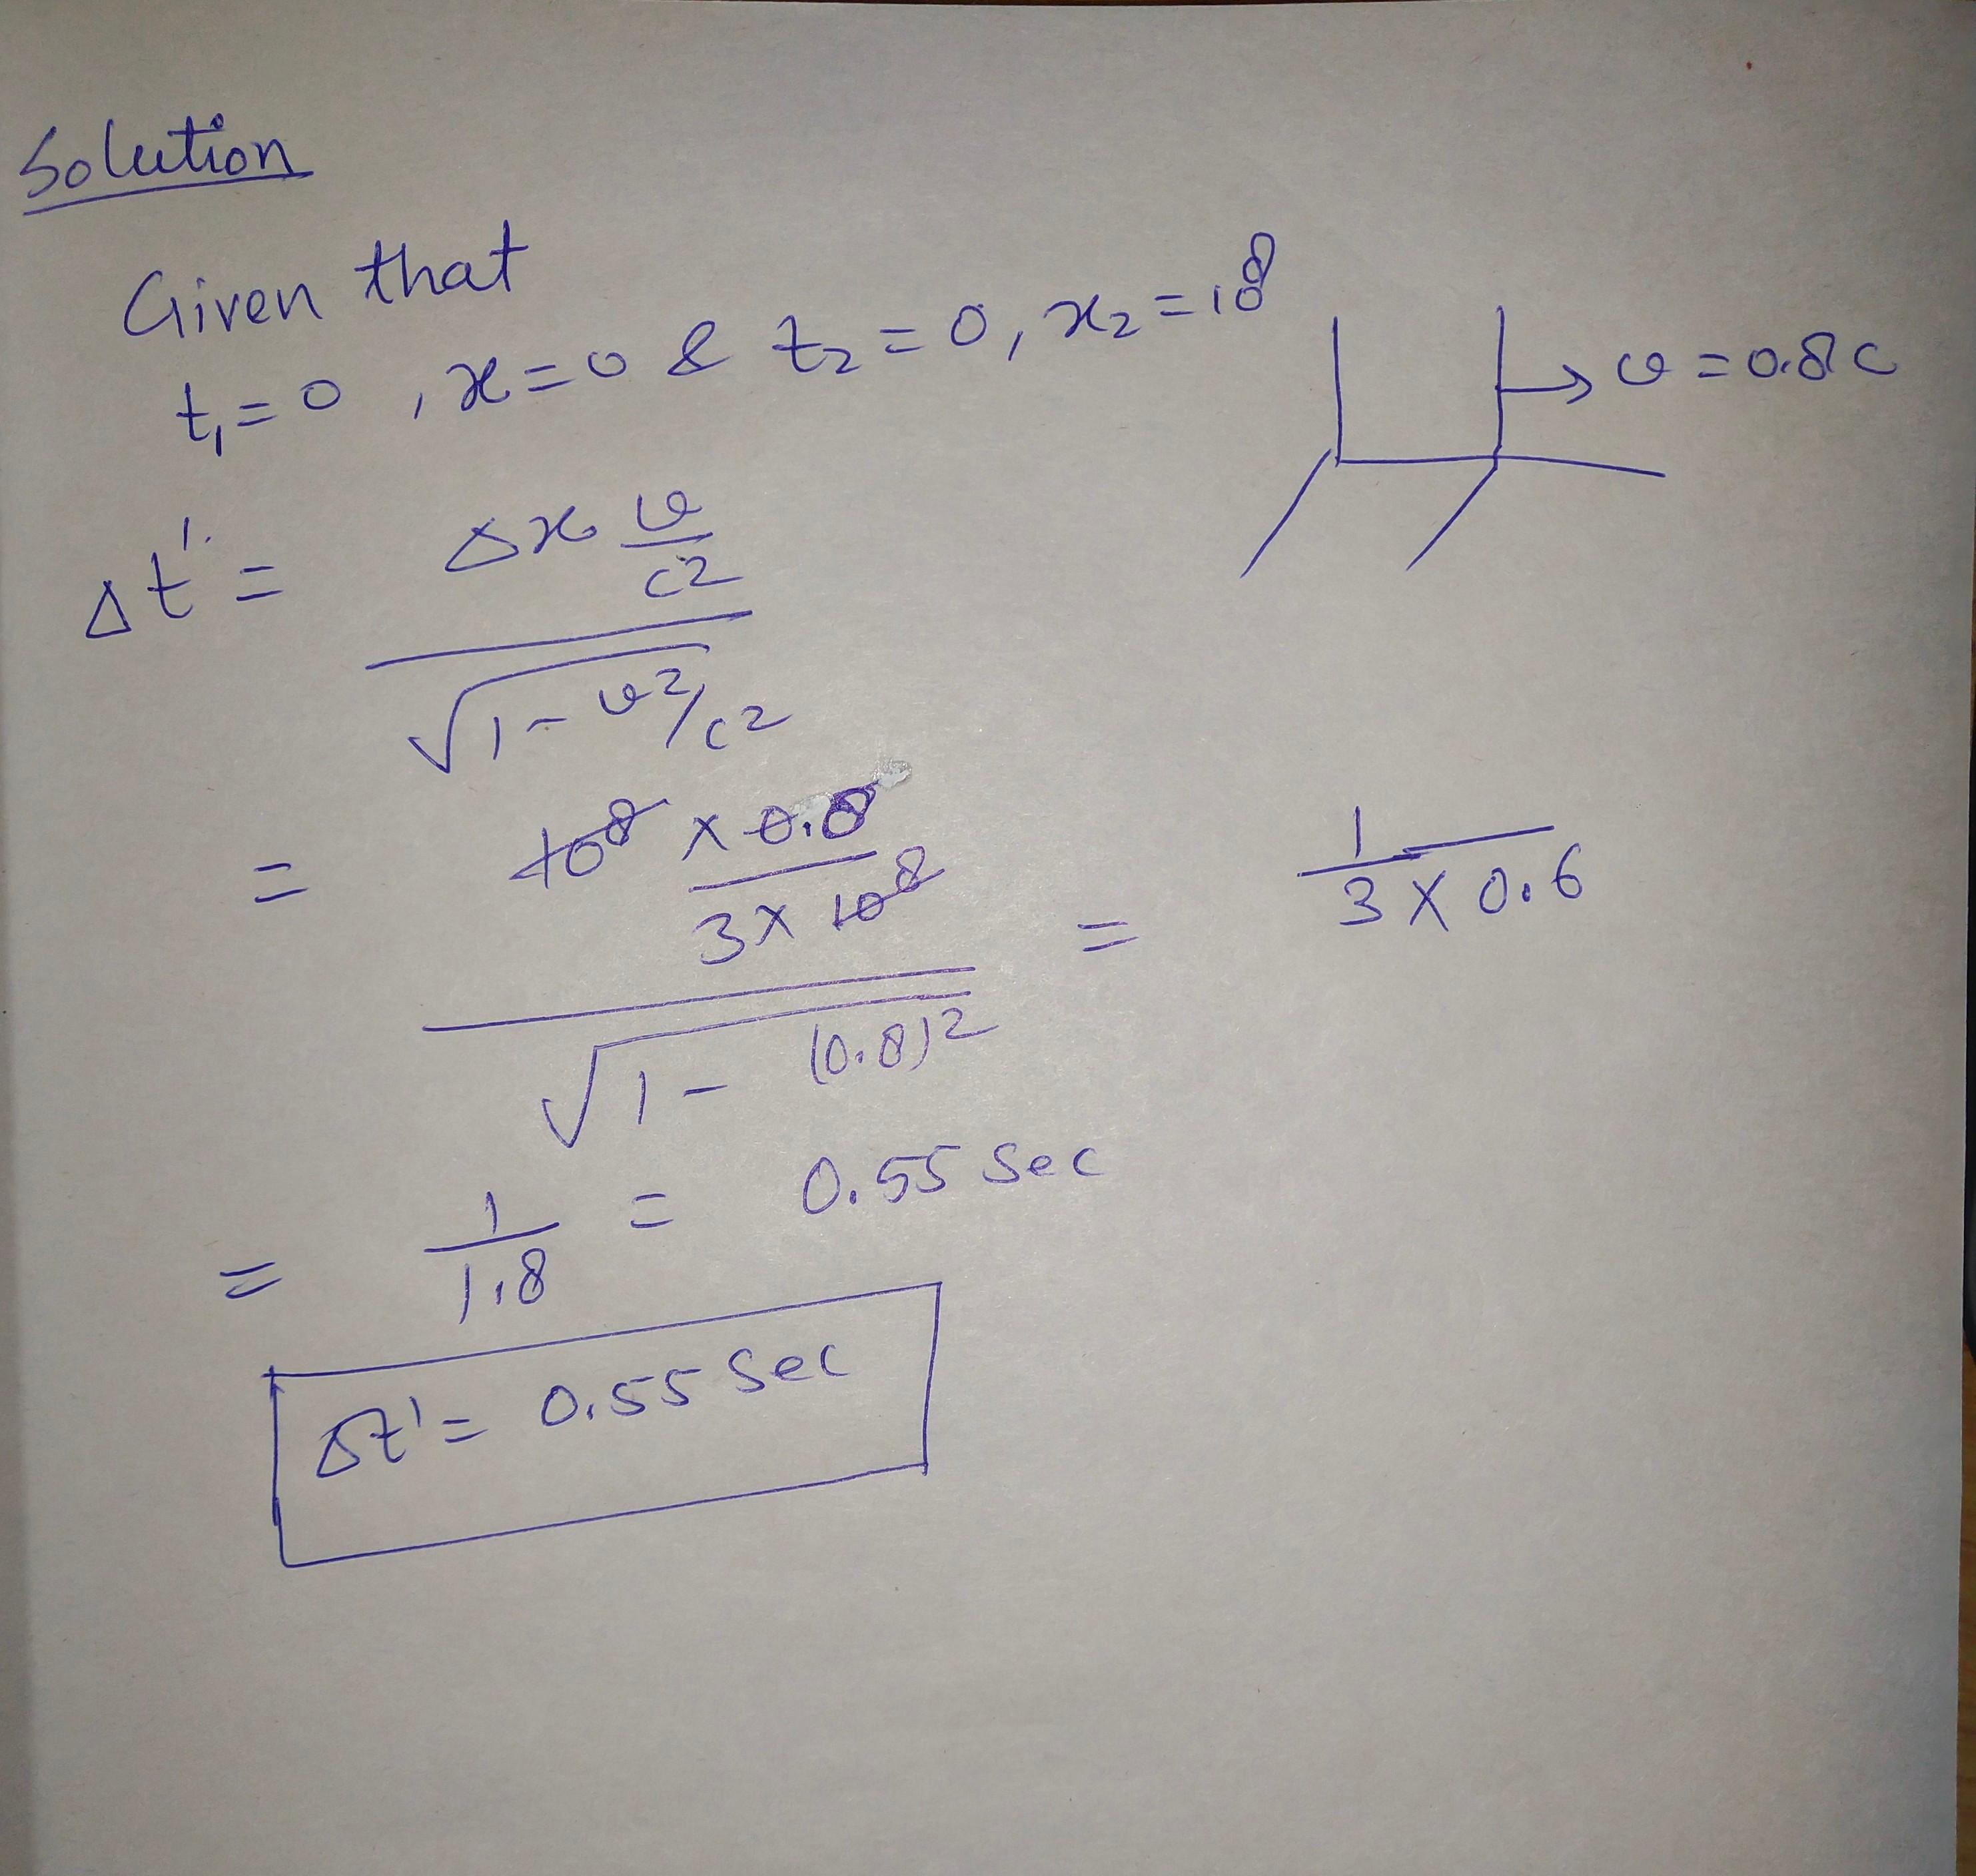 Solution
Given that
t₁=0 , x=0 & t₂=0, x₂=10⁸
→ v=0.8c
Δt' = Δx v/c² / √1-v²/c²
= 10⁸ × 0.8/3×10⁸ / √1-(0.8)² = 1/3×0.6
= 1/1.8 = 0.55 Sec
Δt' = 0.55 Sec